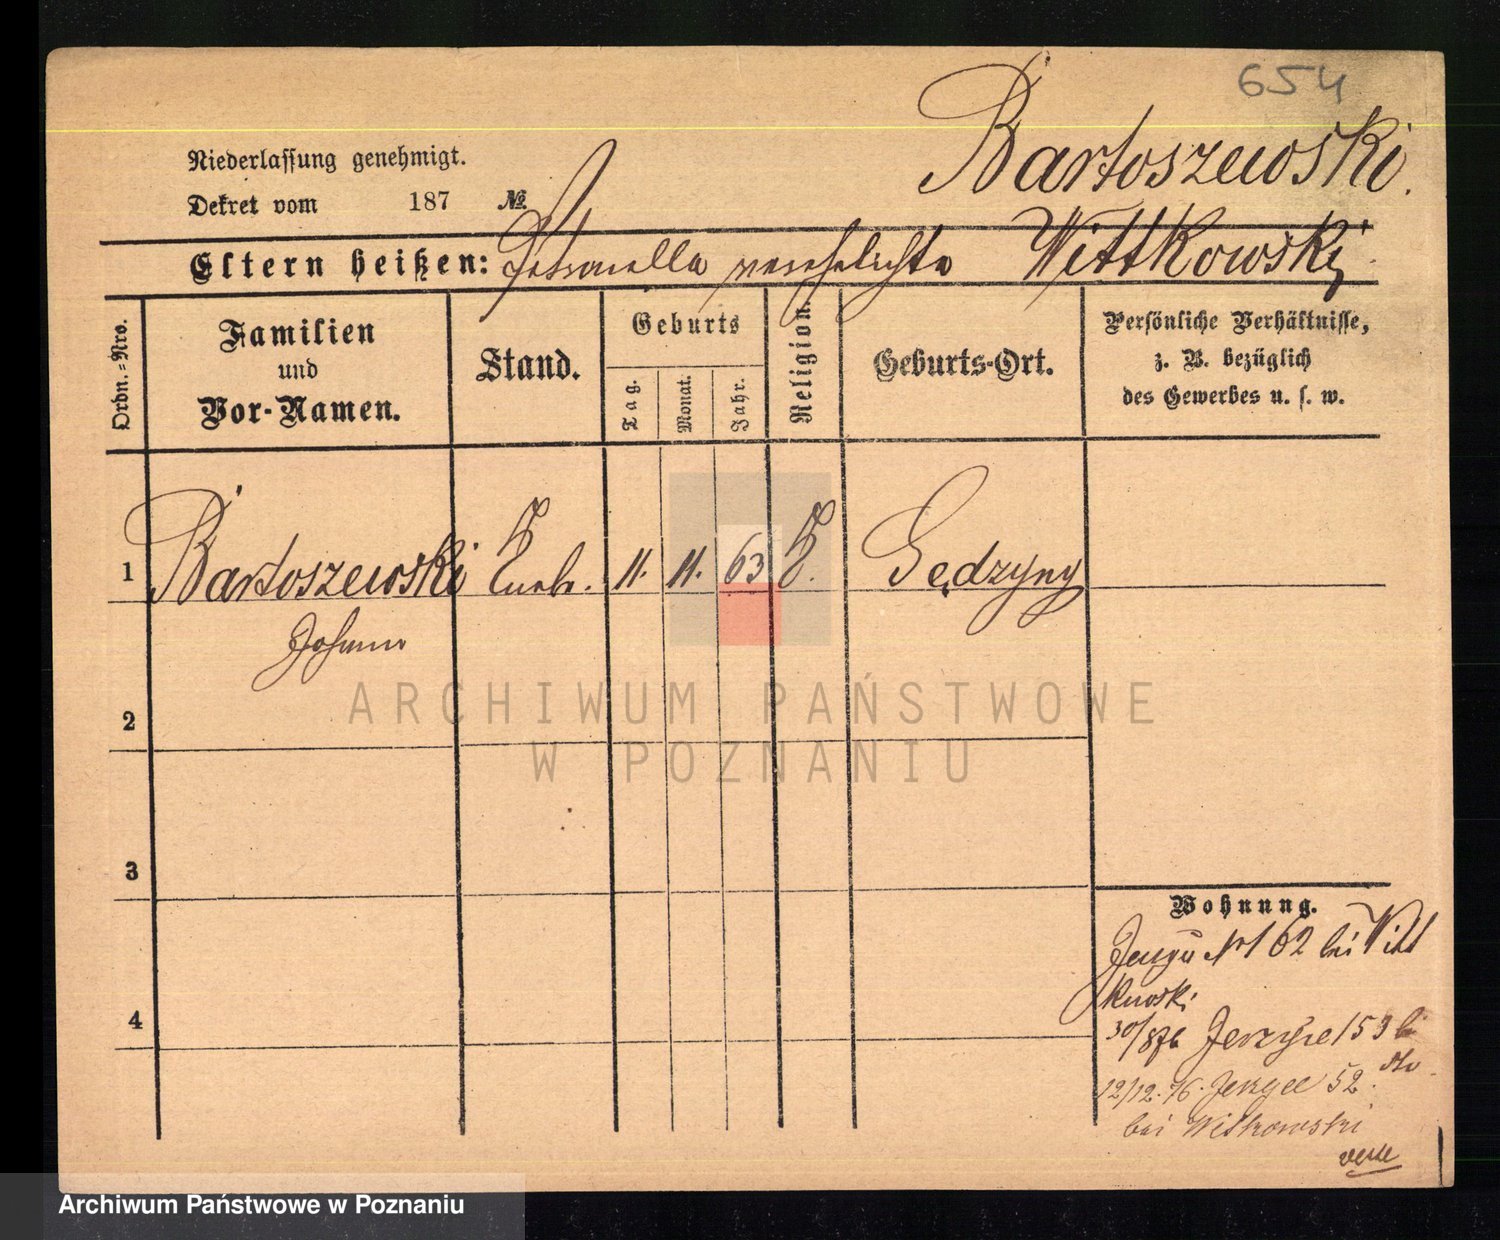 654
Bartoszewski.
Niederlassung genehmigt.
Dekret vom 187 №
Eltern heißen: Petronella verehelichte Wittkowski
Ordn.=Nro.
Familien und Vor-Namen.
Stand.
Geburts
Tag. Monat. Jahr.
Religion.
Geburts-Ort.
Persönliche Verhältnisse,
z. B. bezüglich
des Gewerbes u. s. w.
1 Bartoszewski 11. 11. 63 K. Gędzyny
Johann
2
3
4
Wohnung.
No 162 bei Witt
kowski
30/8 76 Jerzyce 153 b
dto
12/12. 76. Jerzyce 52.
bei Witkowski
ARCHIWUM PAŃSTWOWE
W POZNANIU
Archiwum Państwowe w Poznaniu